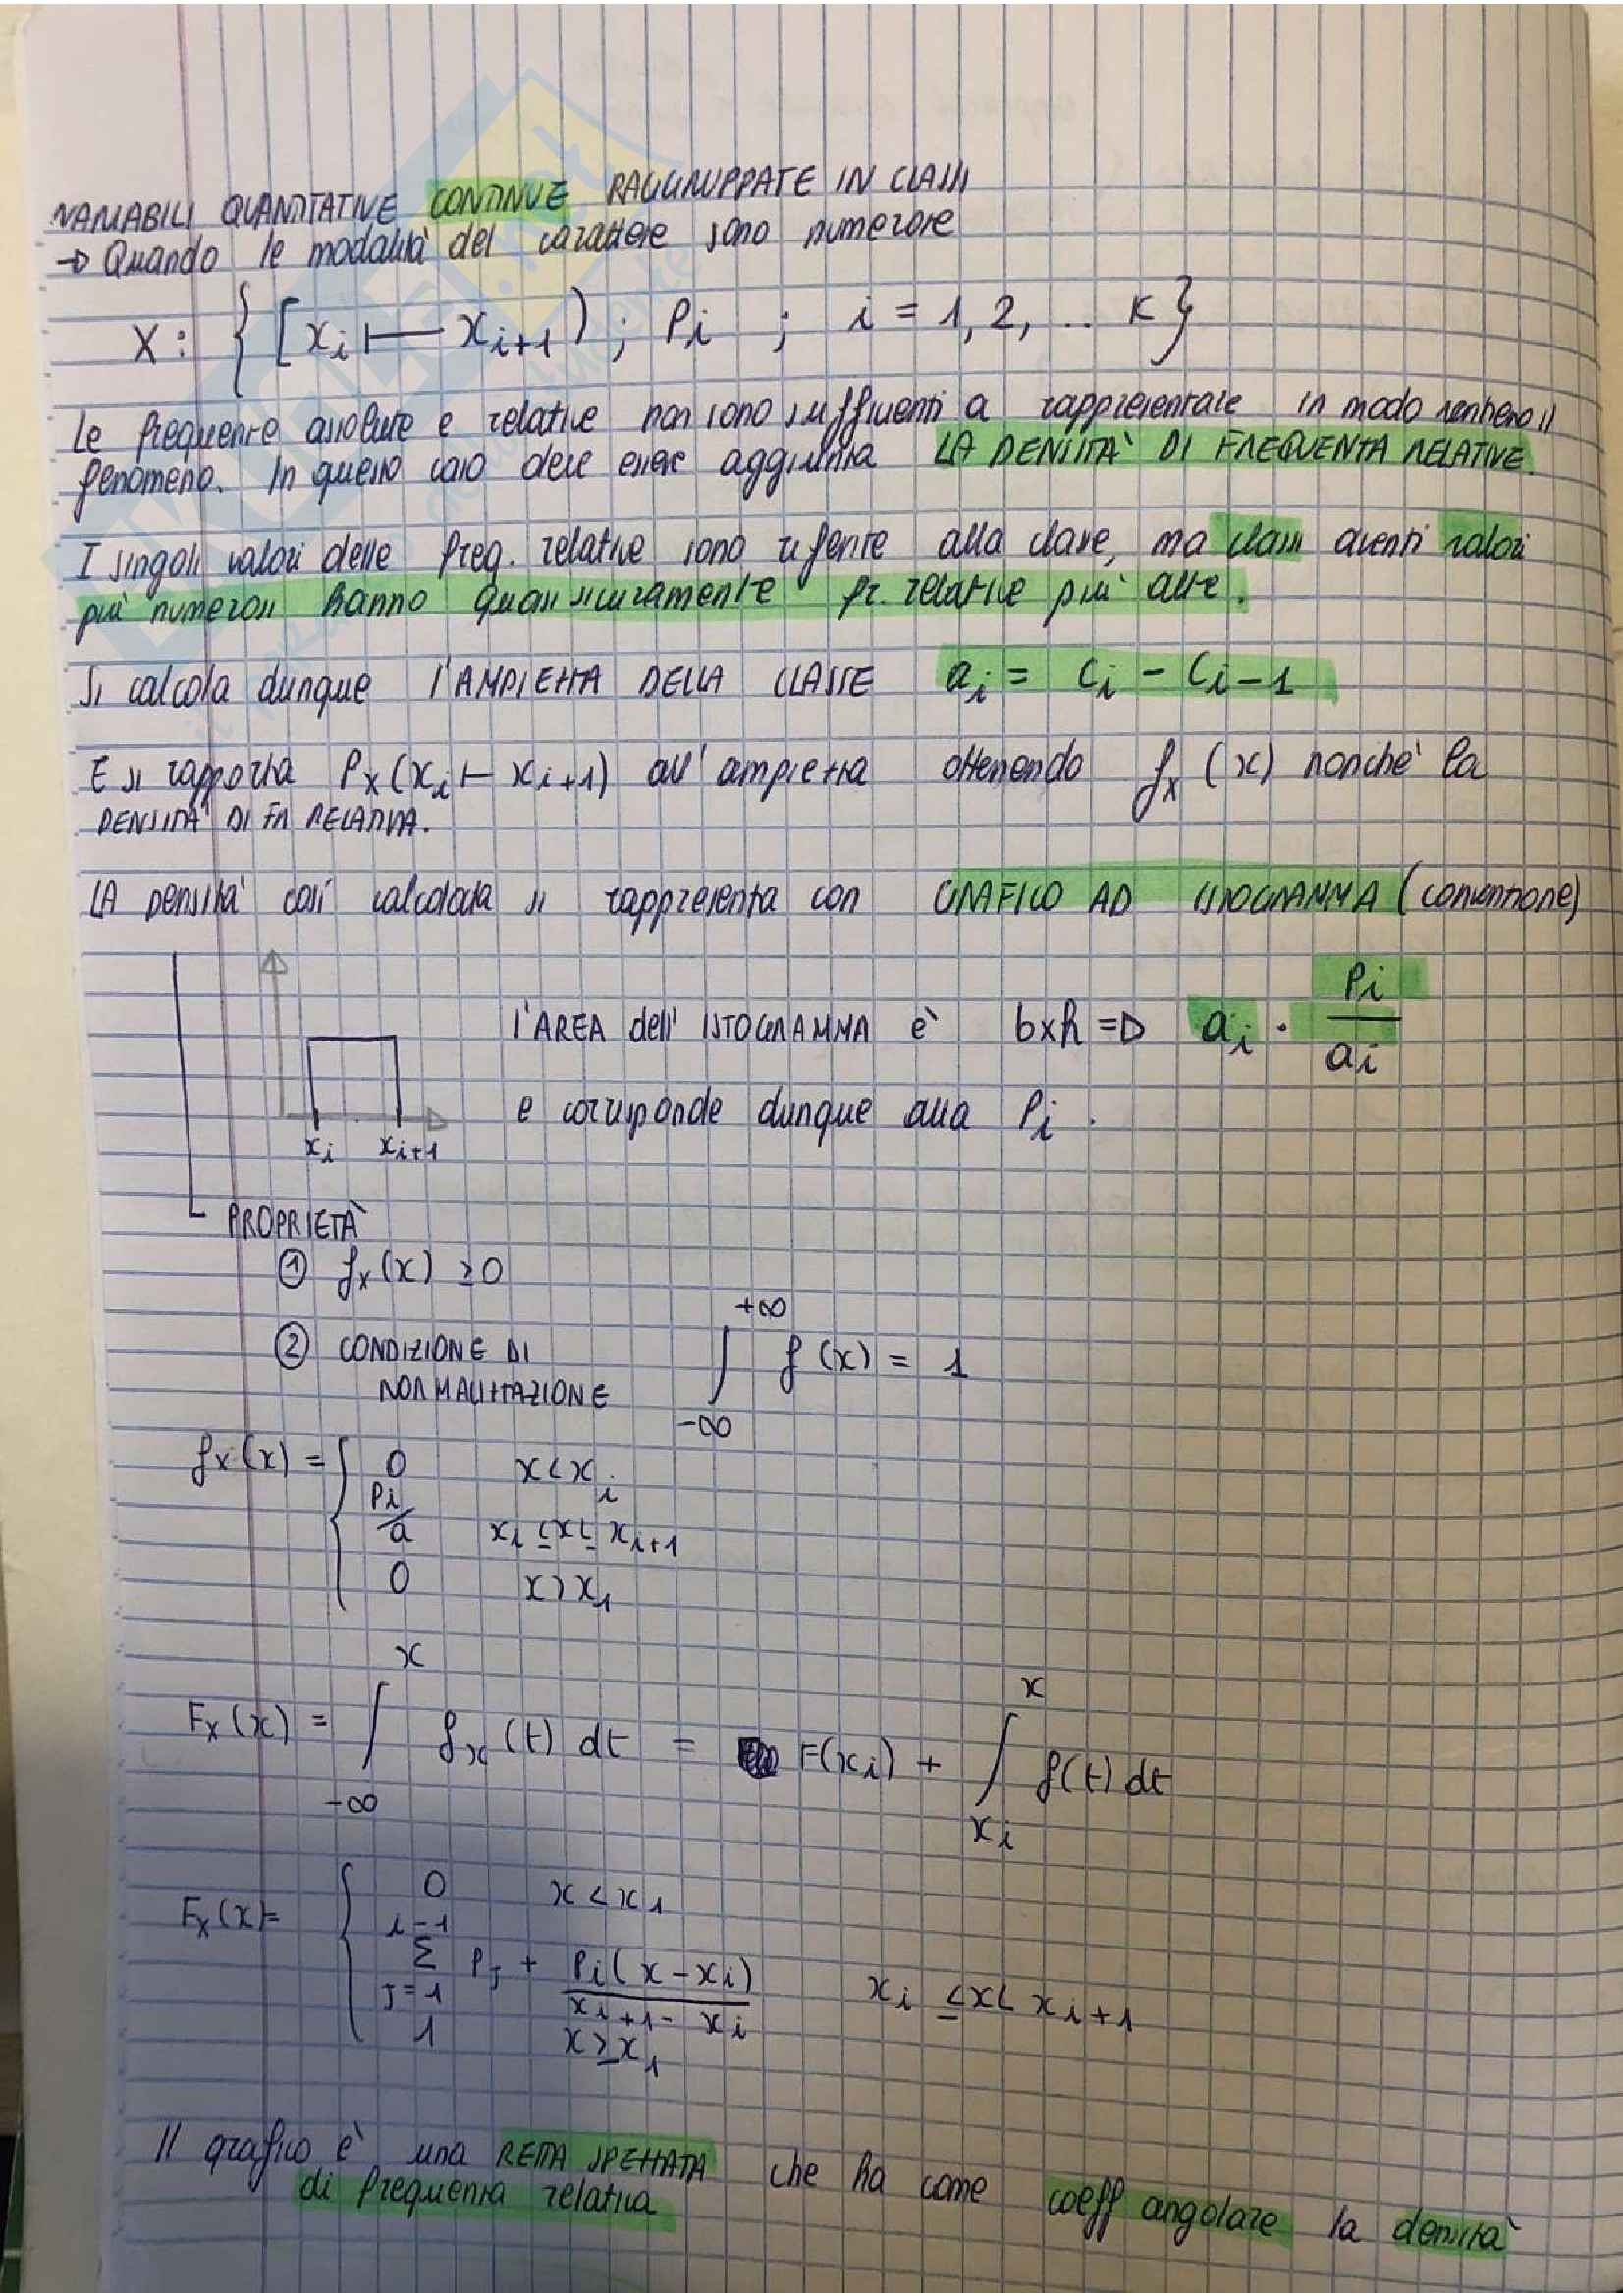 VARIABILI QUANTITATIVE CONTINUE RAGGRUPPATE IN CLASSI
→ Quando le modalità del carattere sono numerose
X: { [xi ⊢ xi+1) ; Pi ; i = 1, 2, .. K}
Le frequenze assolute e relative non sono sufficienti a rappresentare in modo veritiero il
fenomeno. In questo caso deve essere aggiunta LA DENSITA' DI FREQUENZA RELATIVE.
I singoli valori delle freq. relative sono riferite alla classe, ma classi aventi valori
più numerosi hanno quasi sicuramente fr. relative più alte.
Si calcola dunque l'AMPIEZZA DELLA CLASSE ai = Ci - Ci-1
E si rapporta Px(xi ⊢ xi+1) all'ampiezza ottenendo fx (x) nonchè la
DENSITA' DI FR RELATIVA.
LA DENSITA' così calcolata si rappresenta con GRAFICO AD ISTOGRAMMA (convenzione)
l'AREA dell' ISTOGRAMMA è bxh => ai · Pi/ai
e corrisponde dunque alla Pi.
xi xi+1
PROPRIETÀ
① fx(x) ≥ 0
② CONDIZIONE DI
NORMALIZZAZIONE ∫ -∞ +∞ f(x) = 1
fx(x) = { 0 x < xi
Pi/a xi ≤ x ≤ xi+1
0 x > x1
Fx(x) = ∫ -∞ x fx(t) dt = F(xi) + ∫ xi x f(t) dt
Fx(x)= { 0 x < x1
Σ j=1 i-1 Pj + Pi(x-xi)/xi+1 - xi xi ≤ x < xi+1
1 x ≥ x1
Il grafico è una RETTA SPEZZATA che ha come coeff angolare la densità
di frequenza relativa